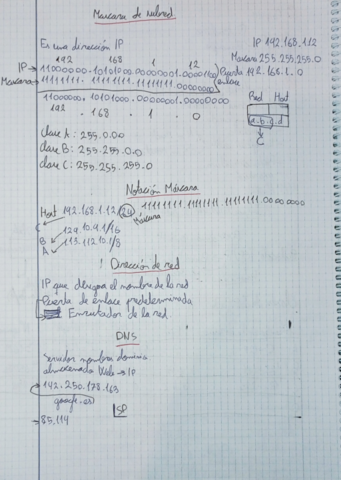 Mascara de subred
Es una dirección IP
IP 192.168.1.12
192 168 1 12
Mascara 255.255.255.0
IP → 11000000.10101000.00000001.00001100
Puerta 192.168.1.0
enlace
Mascara → 11111111.11111111.11111111.00000000
Red Host
11000000.10101000.00000001.00000000
192 . 168 . 1 . 0
a.b.c.d
C
clase A: 255.0.0.0
clase B: 255.255.0
clase C: 255.255.255.0
Notación Máscara
Host 192.168.1.12/24 11111111.11111111.11111111.00000000
Máscara
C
B 129.10.9.1/16
A 113.112.10.1/8
Dirección de red
IP que designa el nombre de la red
Puerta de enlace predeterminada
Enrutador de la red.
DNS
Servidor nombre dominio
almacenado Web → IP
142.250.178.163
google.es
SP
85.114